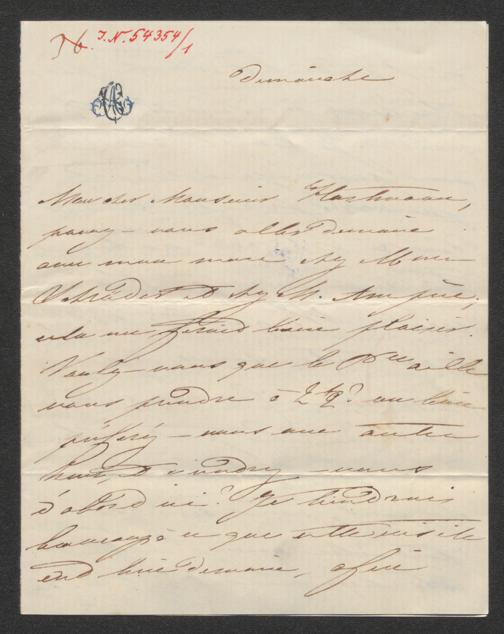 I.N. 54354/1
Dimanche
Mon cher Monsieur Hartmann,
pouvez-vous aller demain
avec mon mari chez Mme
Schrader et chez M. Ampère,
cela me ferait bien plaisir.
Voulez-vous que le Pce aille
vous prendre à 2 1/2? ou bien
préférez-vous une autre
heure, et viendrez-vous
d'abord ici? Je tiendrais
beaucoup à ce que cette visite
eut lieu demain, afin